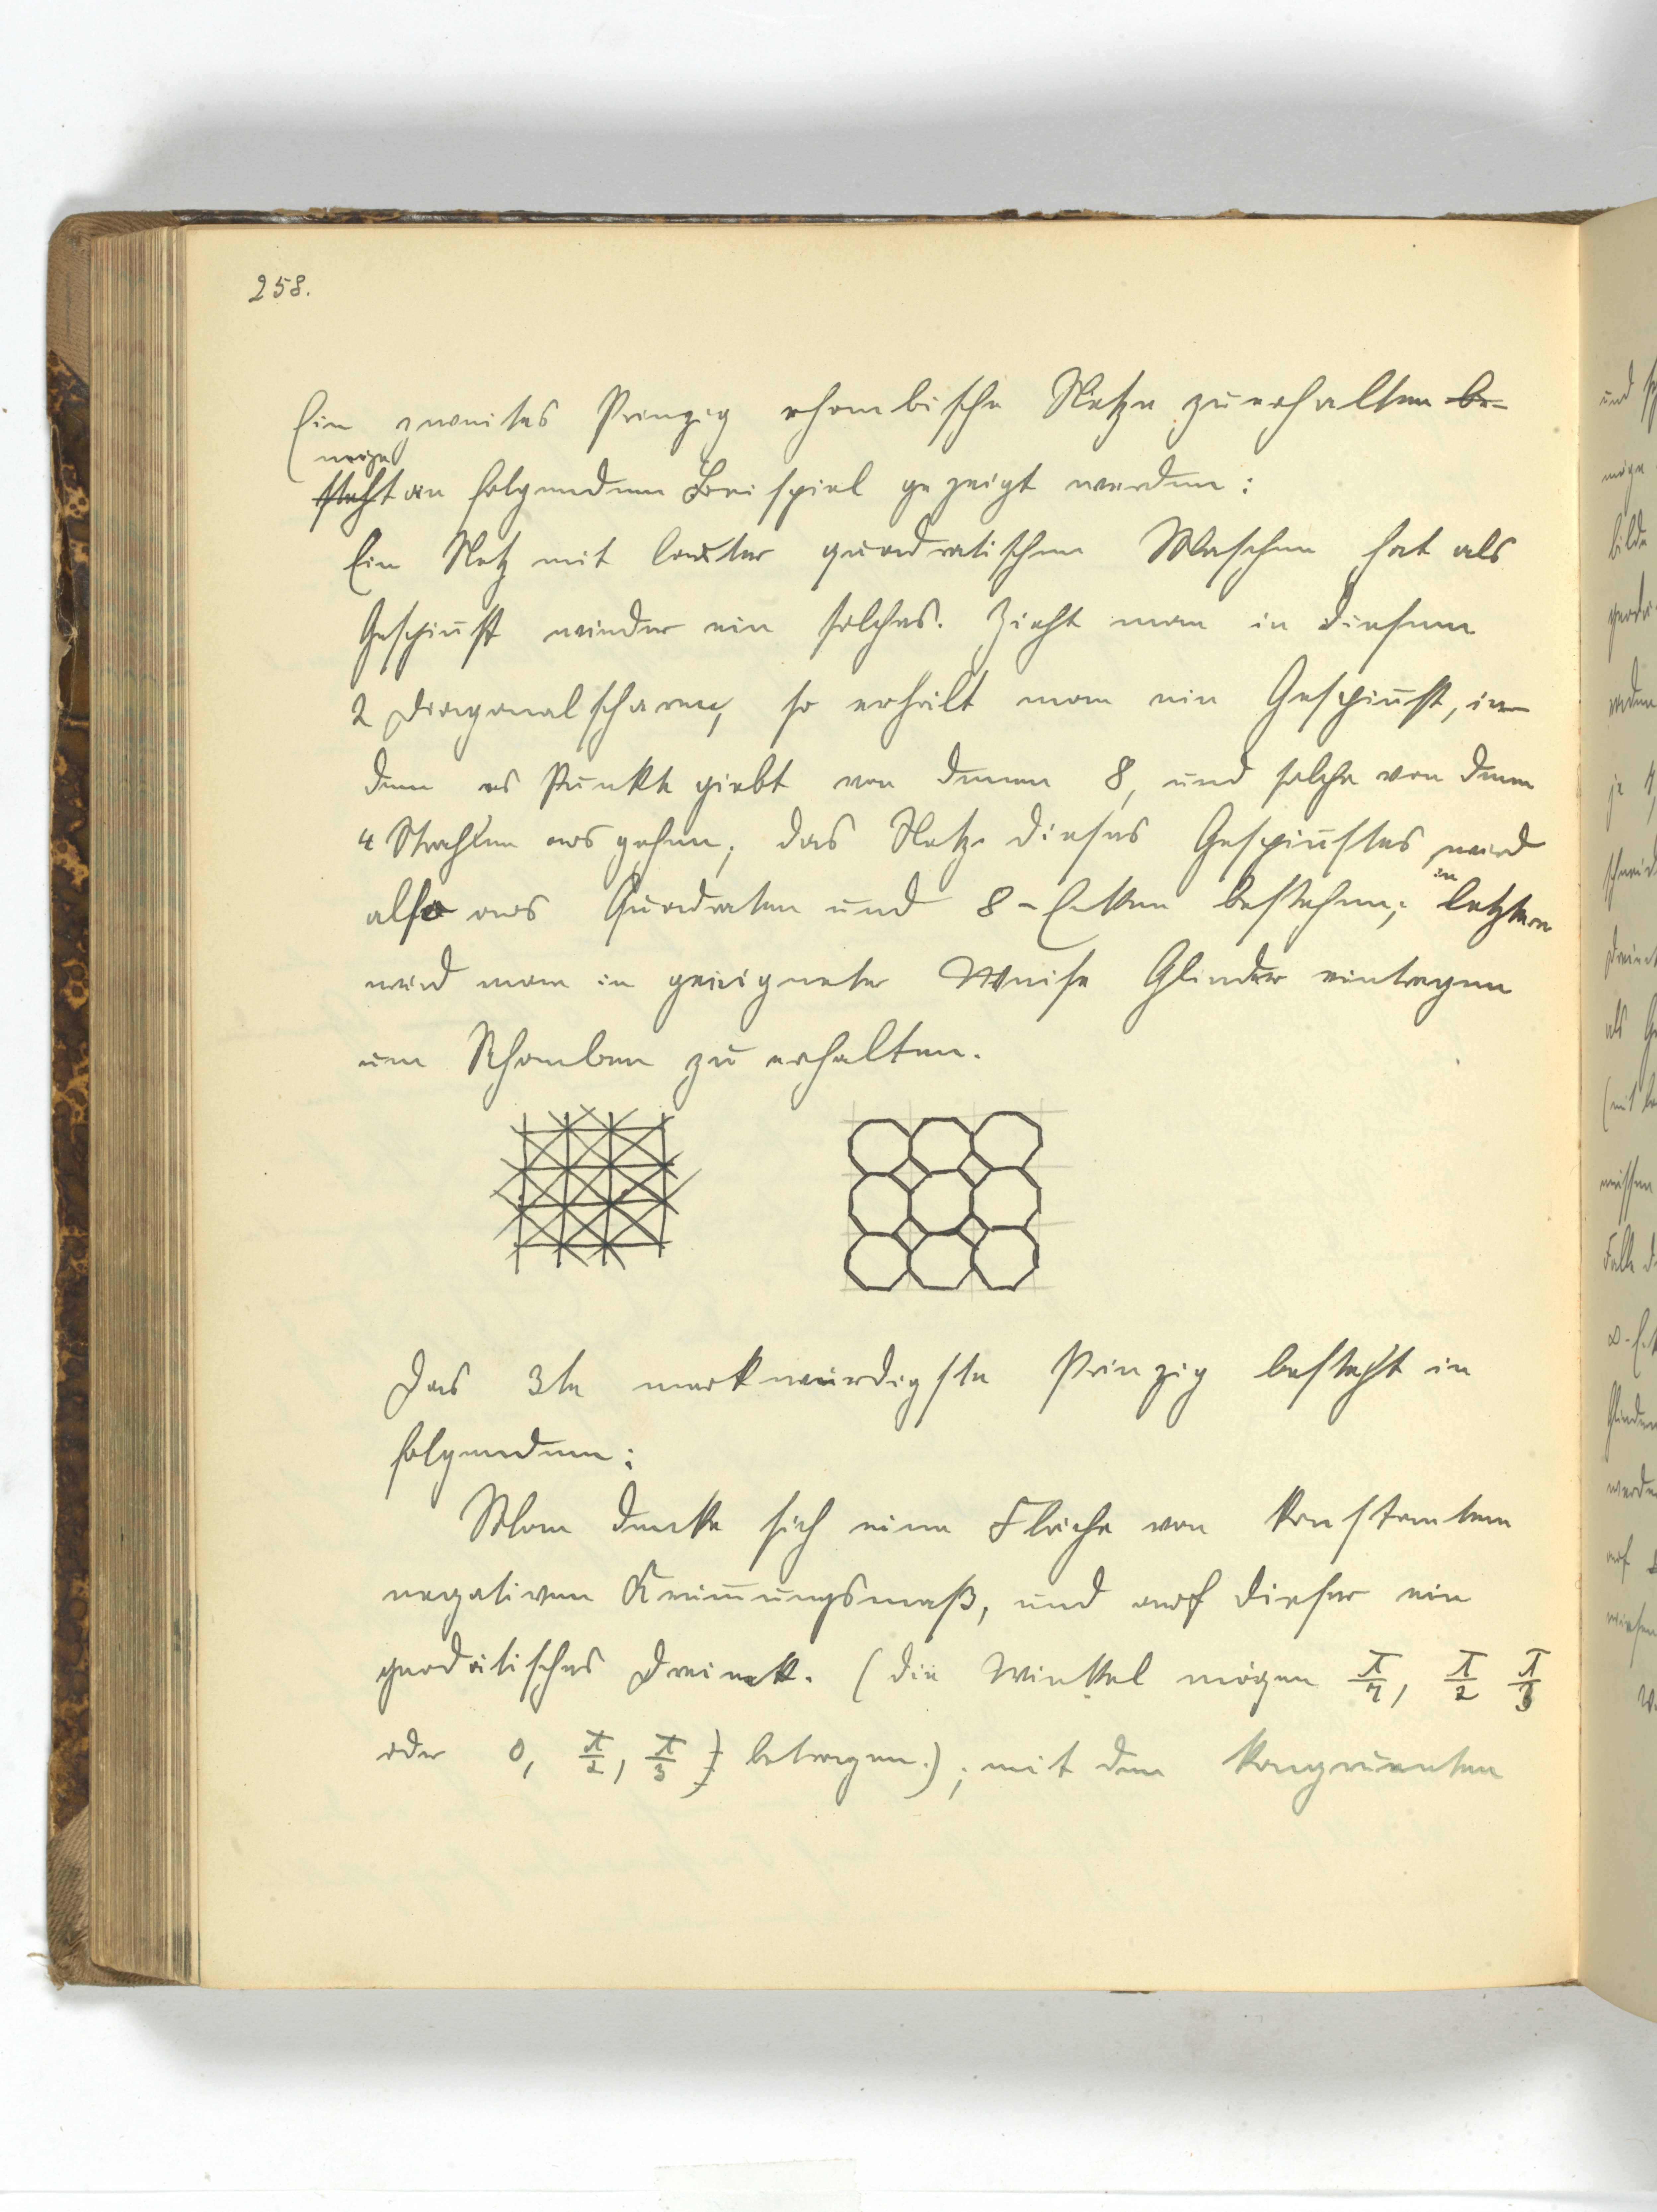 258.
Ein zweites Prinzip rhombische Netze zu erhalten be-
möge
steht an folgendem Beispiel gezeigt werden:
Ein Netz mit lauter quadratischen Maschen hat als
Gespinst wieder ein solches. Zieht man in diesem
2 Diagonalscharen, so erhält man ein Gespinst, in
dem es Punkte giebt von denen 8, und solche von denen
4 Strahlen ausgehen; das Netz dieses Gespinstes wird
also aus Quadraten und 8-Ecken bestehen; in letztere
wird man in geeigneter Weise Glieder eintragen
um Rhomben zu erhalten.
Das 3te merkwürdigste Prinzip besteht in
folgendem:
Man denke sich eine Fläche von konstantem
negativem Krümungsmaß, und auf dieser ein
geodätisches Dreieck. (die Winkel mögen π/7, π/2 π/3
oder 0, π/2, π/3) betragen.); mit dem kongruenten